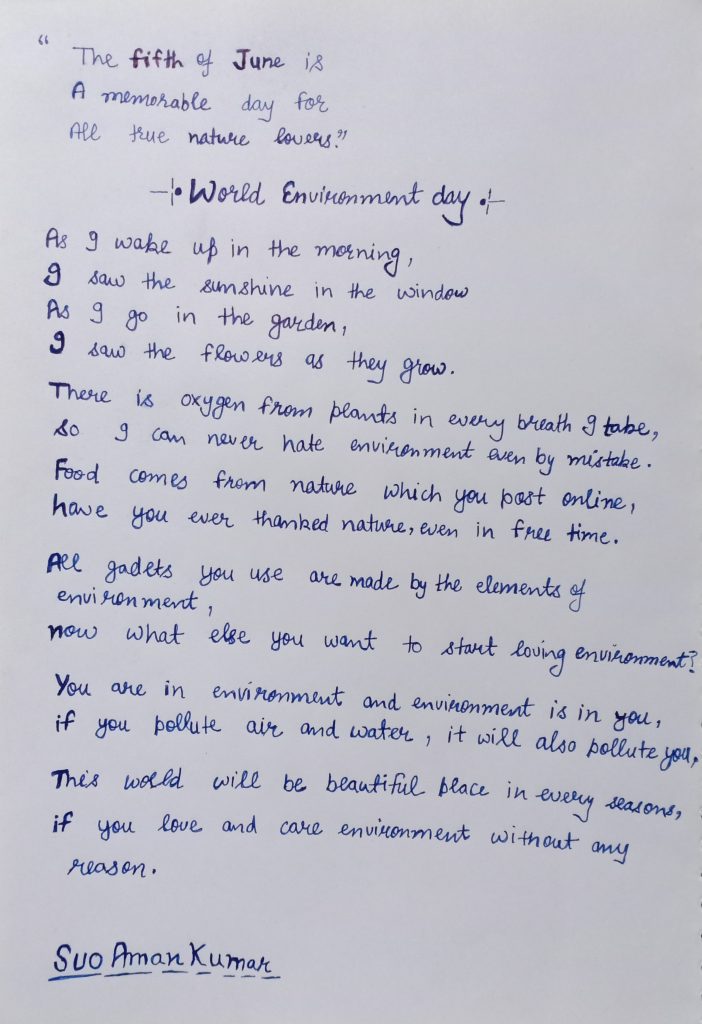 “ The fifth of June is
A memorable day for
All true nature lovers.”
World Environment day
As I wake up in the morning,
I saw the sunshine in the window
As I go in the garden,
I saw the flowers as they grow.
There is oxygen from plants in every breath I take,
so I can never hate environment even by mistake.
Food comes from nature which you post online,
have you ever thanked nature, even in free time.
All gadets you use are made by the elements of
environment,
now what else you want to start loving environment?
You are in environment and environment is in you,
if you pollute air and water, it will also pollute you,
This world will be beautiful place in every seasons,
if you love and care environment without any
reason.
SUO Aman Kumar